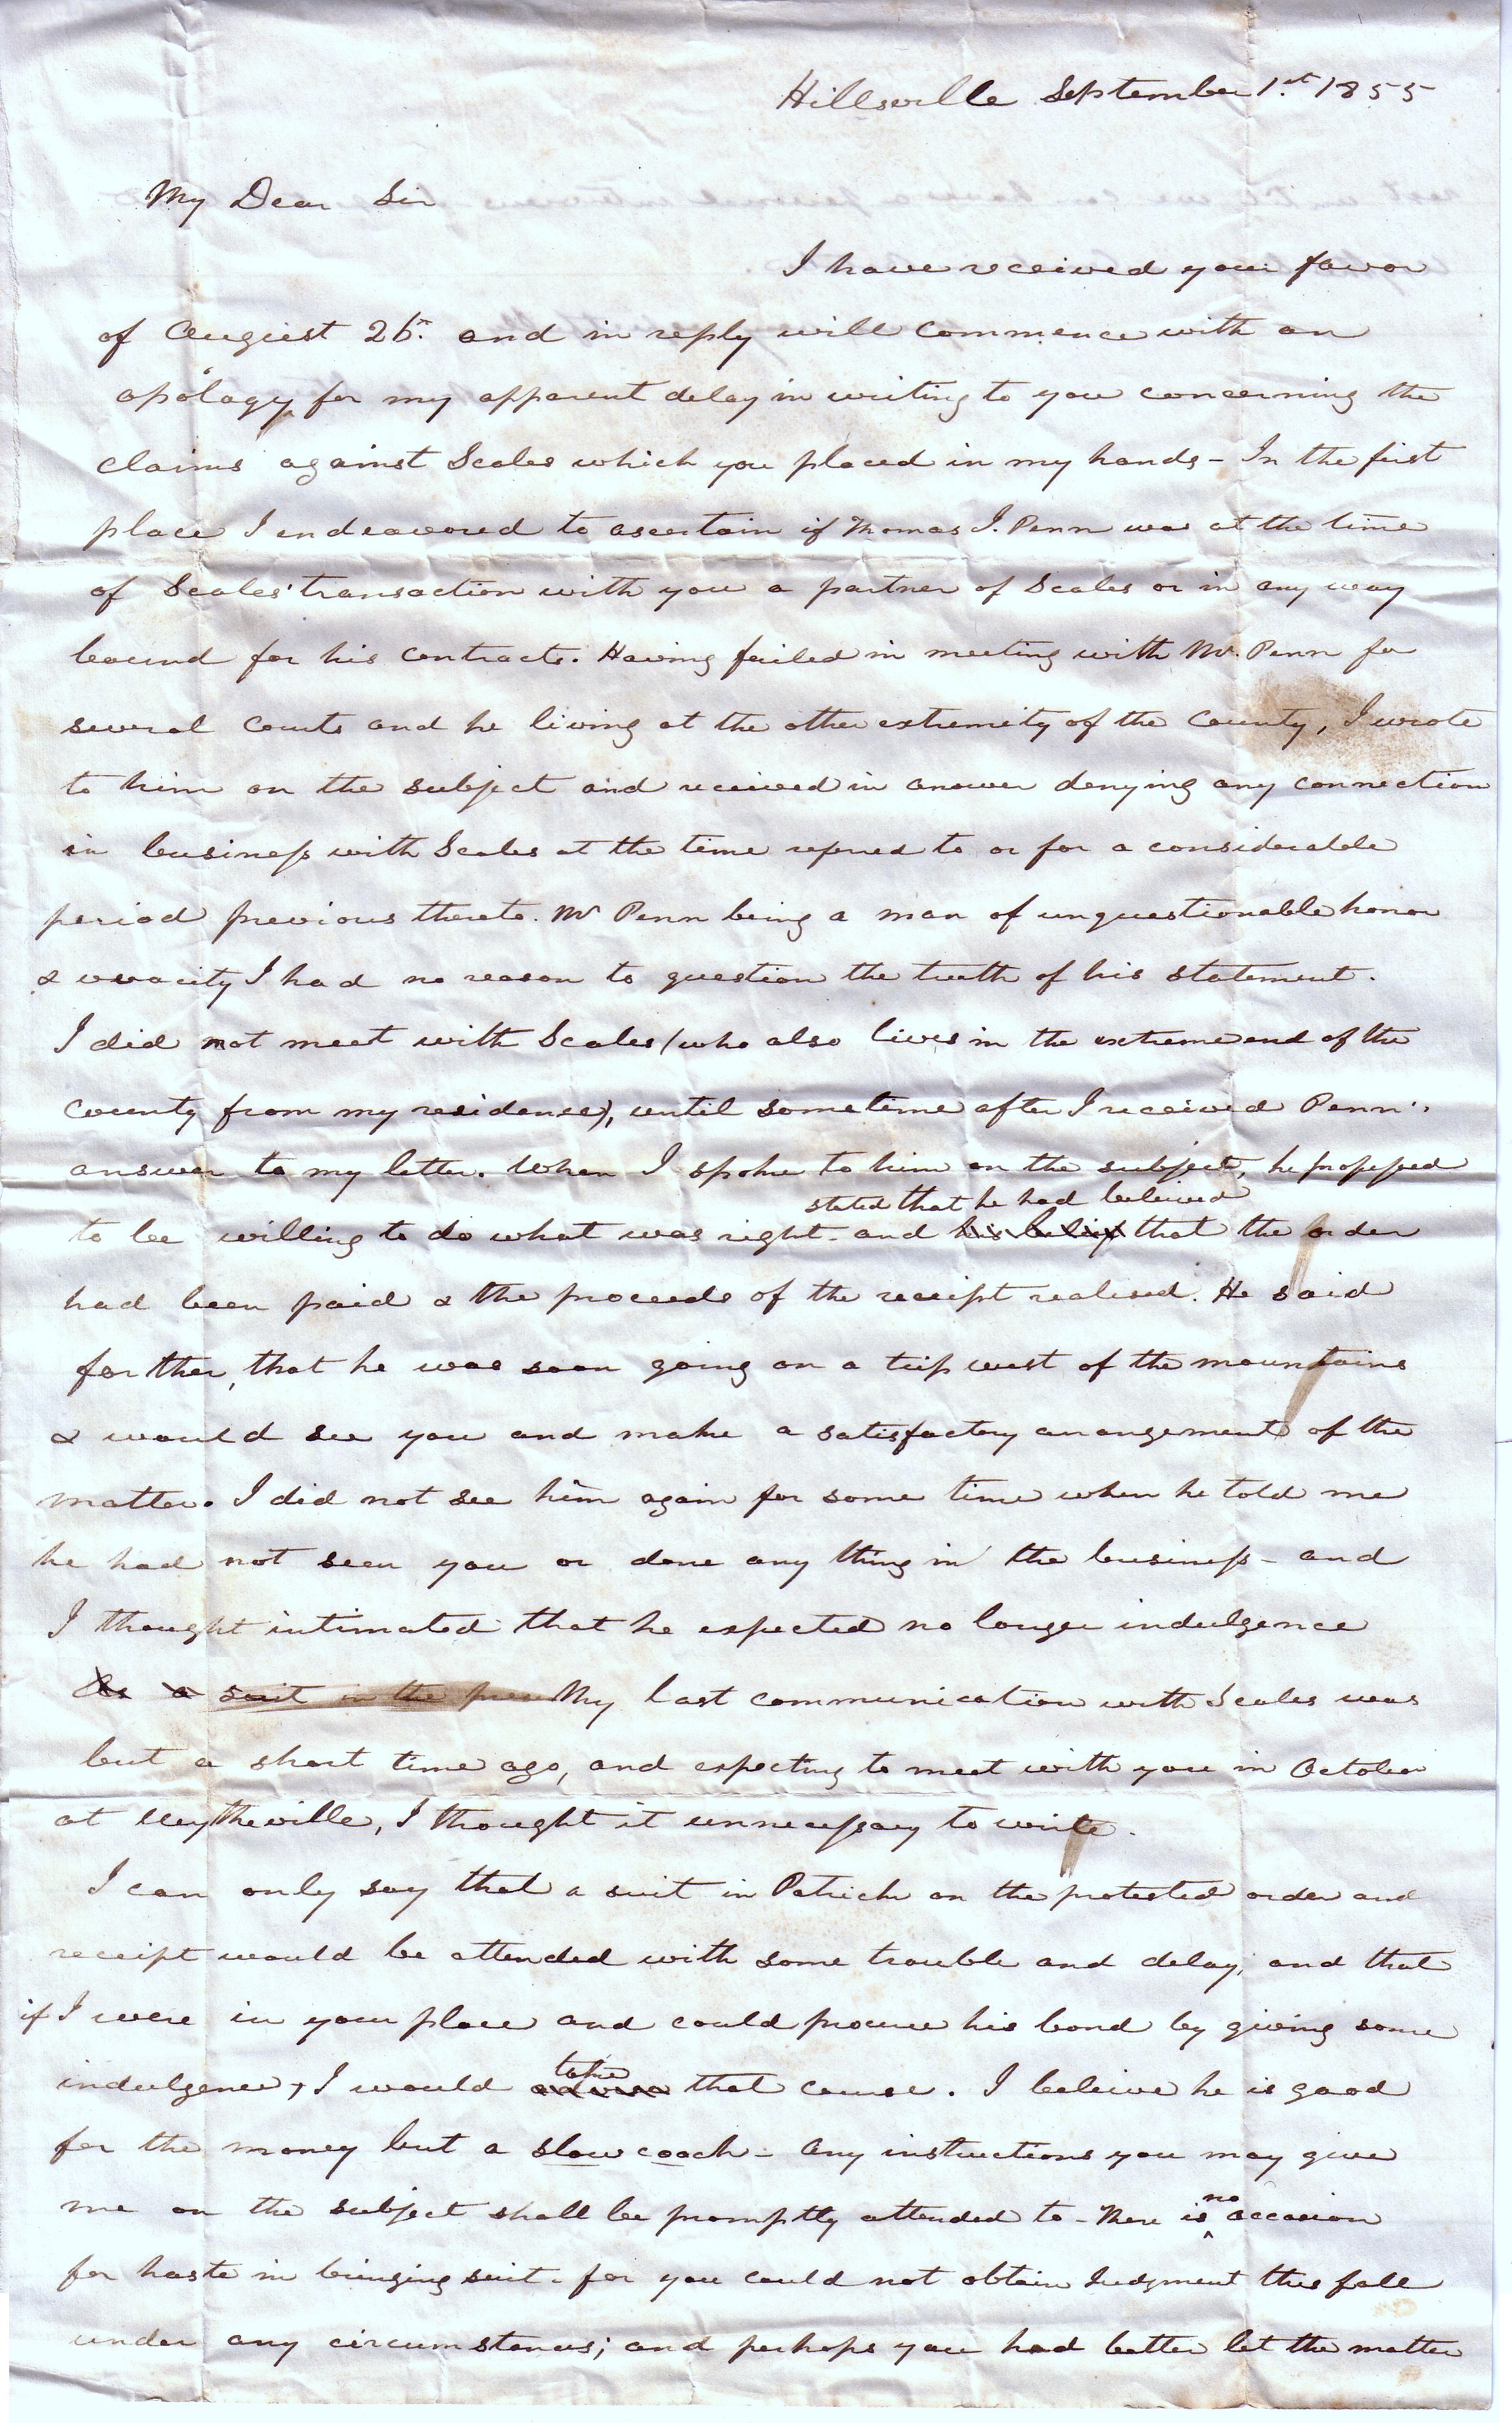 Hillsville September 1.st 1855
My Dear Sir
I have received your favor
of August 26th and in reply will commence with an
apology for my apparent delay in writing to you concerning the
claims against Scales which you placed in my hands - In the first
place I endeavored to ascertain if Thomas J. Penn was at the time
of Scales' transaction with you a partner of Scales or in any way
bound for his contracts. Having failed in meeting with Mr. Penn for
several Courts and he living at the other extremity of the County, I wrote
to him on the subject and received in answer denying any connection
in business with Scales at the time referred to or for a considerable
period previous thereto. Mr Penn being a man of unquestionable honor
& veracity I had no reason to question the truth of his statement.
I did not meet with Scales (who also lives in the extreme end of the
county from my residence), until sometime after I received Penn's
answer to my letter. When I spoke to him on the subject, he professed
stated that he had beleived
to be willing to do what was right - and his belief that the order
had been paid & the proceeds of the receipt realised. He said
further, that he was soon going on a trip west of the mountains
& would see you and make a satisfactory arrangement of the
matter. I did not see him again for some time when he told me
he had not seen you or done any thing in the business - and
I thought intimated that he expected no longer indulgence
As a suit in the My last communication with Scales was
but a short time ago, and expecting to meet with you in October
at Wytheville, I thought it unnecessary to write.
I can only say that a suit in Patrick on the protested order and
receipt would be attended with some trouble and delay, and that
if I were in your place and could procure his bond by giving some
take
indulgence, I would advise that course. I beleive he is good
for the money but a slow coach - Any instructions you may give
no
me on the subject shall be promptly attended to - There is ^ occasion
for haste in bringing suit - for you could not obtain Judgment this fall
under any circumstances; and perhaps you had better let the matter